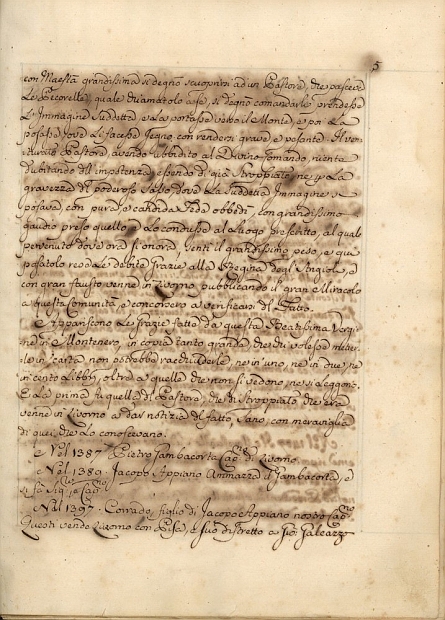 5
con Maestà grandissima si degnò scuoprirsi ad un Pastore, che pasceva
Le Pecorelle, quale chiamatolo a se, si degnò comandarli prendesse
L'Immagine suddetta, e la portasse verso il Monte, e poi La
posasse, dove Le facesse segno con rendersi grave, e pesante. Il ven
turato Pastore avendo ubbidito al Divino Comando, niente
dubitando dell'impotenza, essendo di già stroppiato, ne per La
gravezza di poderoso Sasso dove La suddetta Immagine si
posava, con pura, e candida fede obbedì, con grandissimo
gaudio preso quello, Lo condusse al Luogo prescritto, al qual
pervenuto dove ora si onora, sentì il grandissimo peso, e qui
posatolo rese Le debite grazie alla Regina degl'Angioli, e
con gran fausto venne in Livorno pubblicando il gran Miracolo
a questa Comunità, e concorsero a verificarsi del Fatto.
Appariscono Le grazie fatte da questa Beatissima Vergi
ne in Montenero, in copia tanto grande, che chi volesse metter
le in carta non potrebbe racchiuderle, ne in uno, ne in due, ne
in cento Libbri, oltre a quelle che non si vedono, ne si leggono.
E La prima fu quella del Pastore, che di stroppiato che era
venne in Livorno a dar notizia del fatto, sano, con meraviglia
di quei che Lo conoscevano.
Nel 1387. Pietro Gambacorta Cap. di Livorno.
Nel 1389. Jacopo Appiano Ammazza il Gambacorta, e
si fa Sig.re e Cap.no
Nel 1397. Corrado, figlio di Jacopo Appiano nostro Cap.no
Questi vende Livorno con Pisa, e suo distretto a Gio: Galeazzo